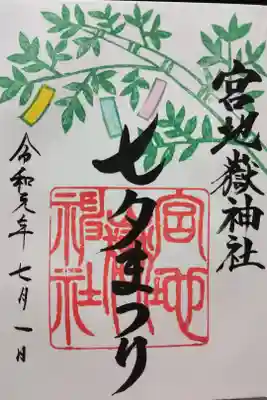 宮地嶽神社
七夕まつり
宮地嶽神社
令和元年 七月一日